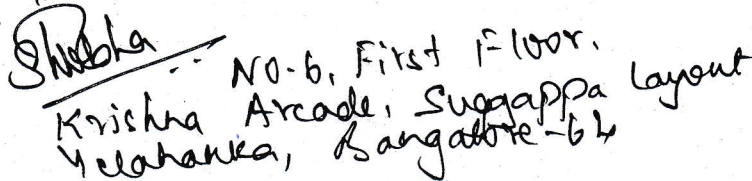 Shubha
No-6, First Floor.
Krishna Arcade, Suggappa Layout
Yelahanka, Bangalore-64